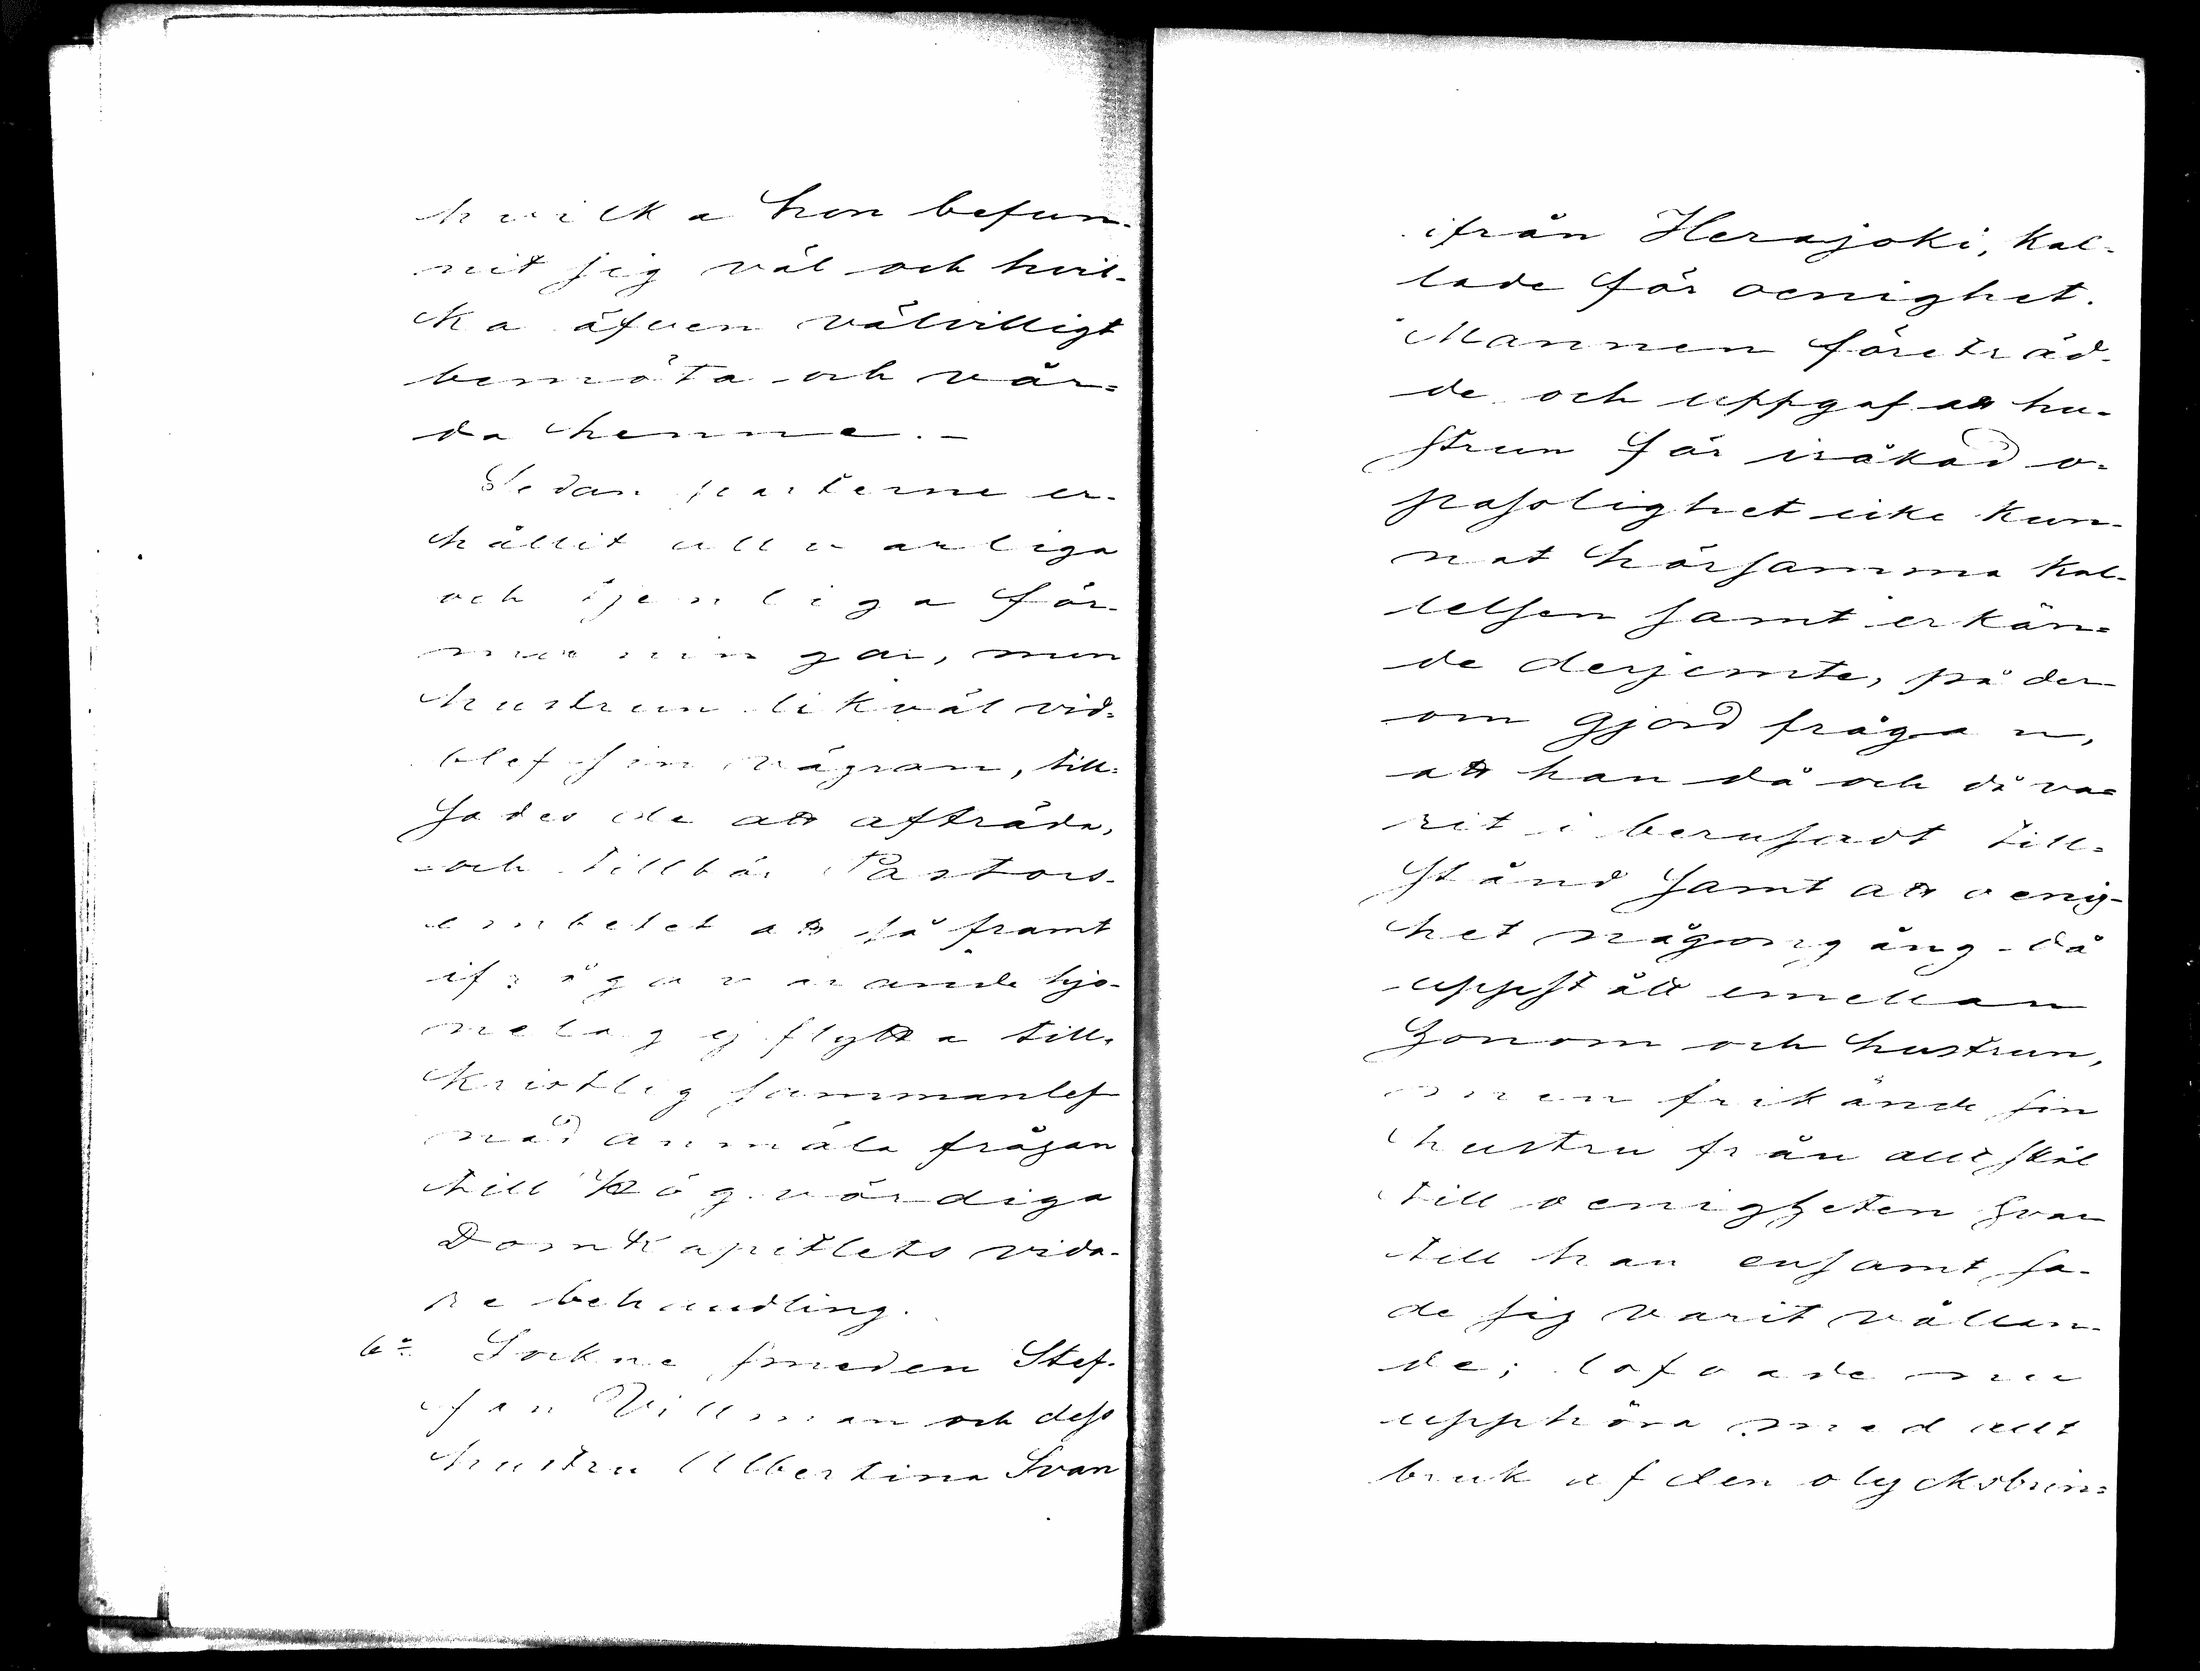 hvilka hon befun-
nit sig väl och hvil-
ka äfven välvilligt
bemöta och vår-
da henne. -
Sedan parterne er-
hållit allvarliga
och ömliga för-
maningar, men
hustrun likväl vid-
blef sin vägran, till-
sades de att afträda,
och tillhör Pastors-
embetet att så framt
ifrågavarande hjo-
nelag ej flytta till
Kristlig sammanlef
nad anmäla frågan
till Högvördiga
Domkapitlets vida-
re behandling.
6=o Sockne smeden Stef-
fan Villman och dess
hustru Albertina Svan
ifrån Herajoki, kal-
lade för oenighet.
Mannen företräd-
de och uppgaf att hu-
strun för iråkad o-
passlighet icke kun-
nat hörsamma kal-
lelsen samt erkän-
de derjemte, på der
om gjord frågan,
att han då och då va-
rit i berusadt till-
stånd samt att oenig-
het någongång då
uppstått emellan
honom och hustrun,
men frikände sin
hustru från allt skäl
till oenigheten hvar
till han ensamt sa-
de sig varit vållan-
de; lofvade nu
upphöra med allt
bruk af den olycksbrin-